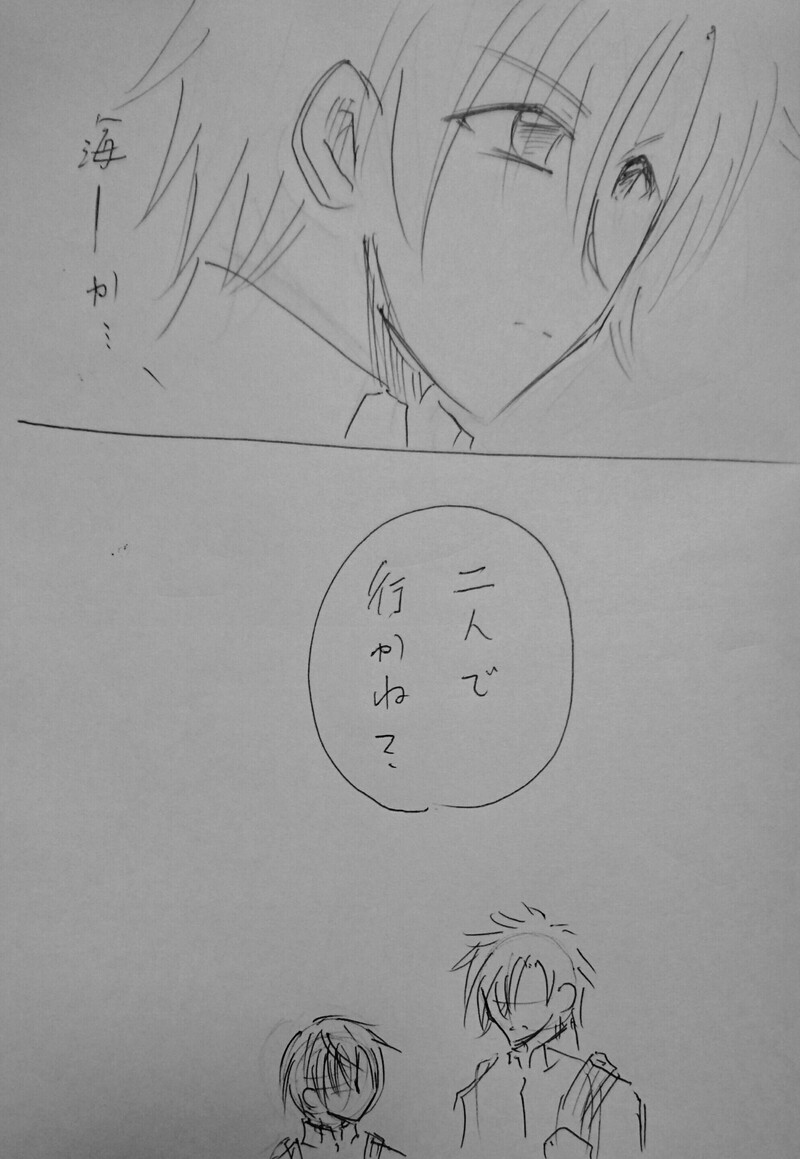 海ーか…
二人で
行かね?